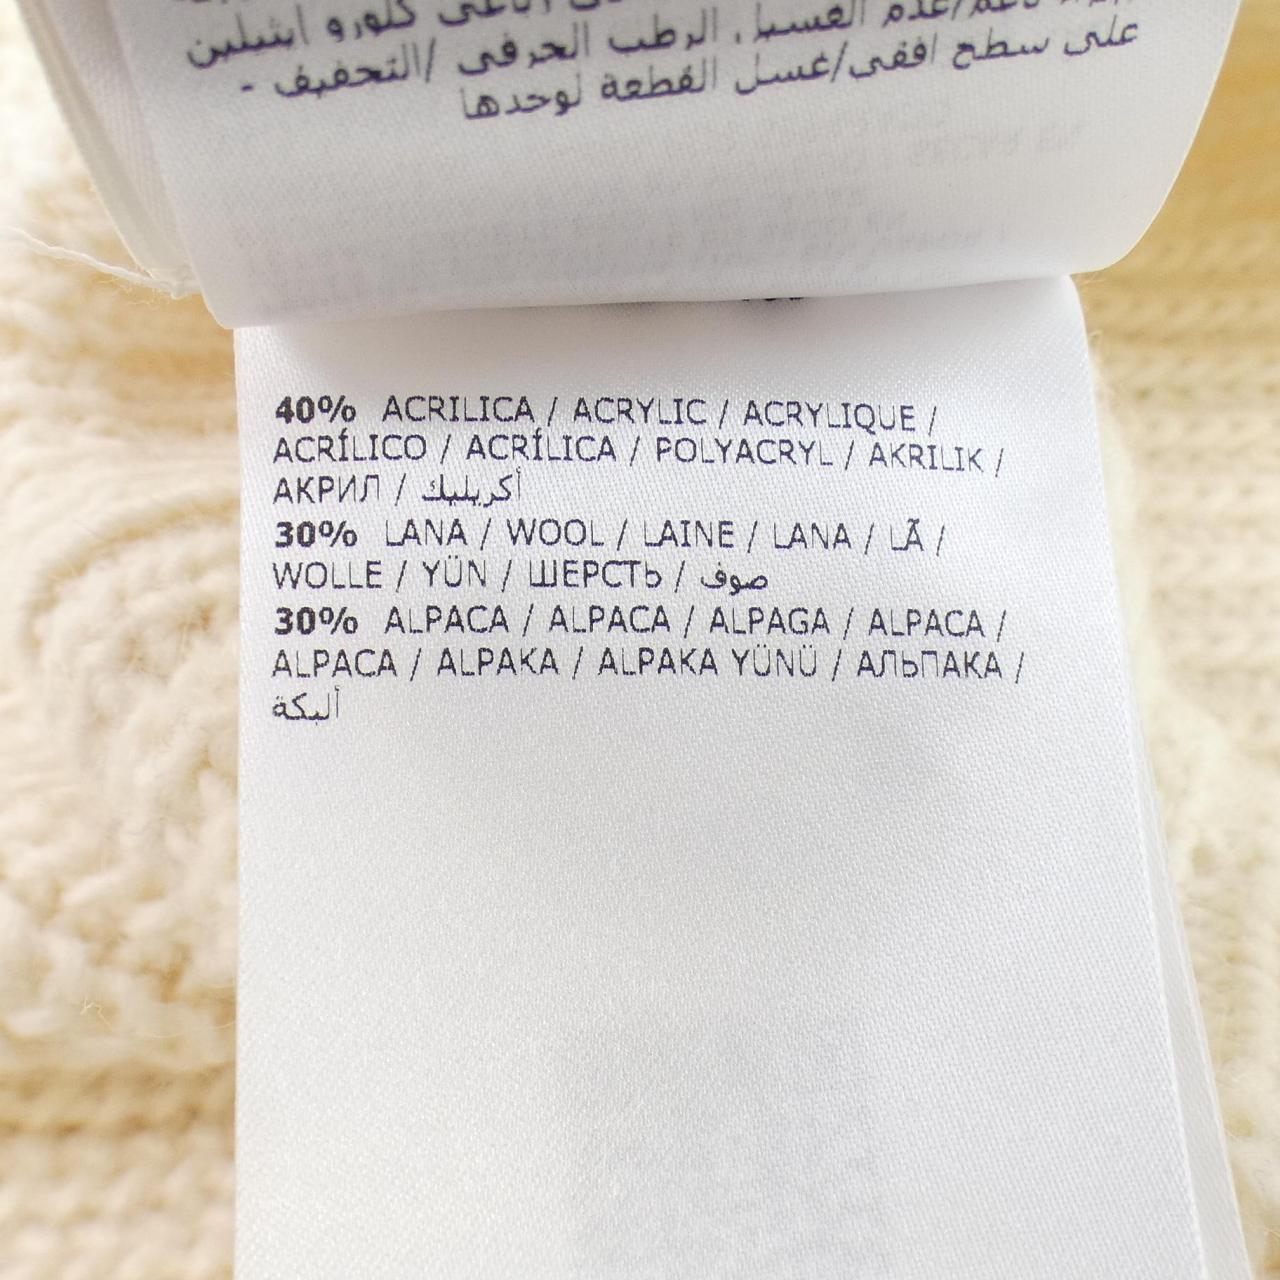 رباعي كلورو ايثيلين
/عدم الغسيل الرطب الحرفي /التجفيف -
على سطح افقي/غسل القطعة لوحدها
40% ACRILICA / ACRYLIC / ACRYLIQUE /
ACRÍLICO / ACRÍLICA / POLYACRYL / AKRILIK /
АКРИЛ / أكريليك
30% LANA / WOOL / LAINE / LANA / LÃ /
WOLLE / YÜN / ШЕРСТЬ / صوف
30% ALPACA / ALPACA / ALPAGA / ALPACA /
ALPACA / ALPAKA / ALPAKA YÜNÜ / АЛЬПАКА /
ألبكة